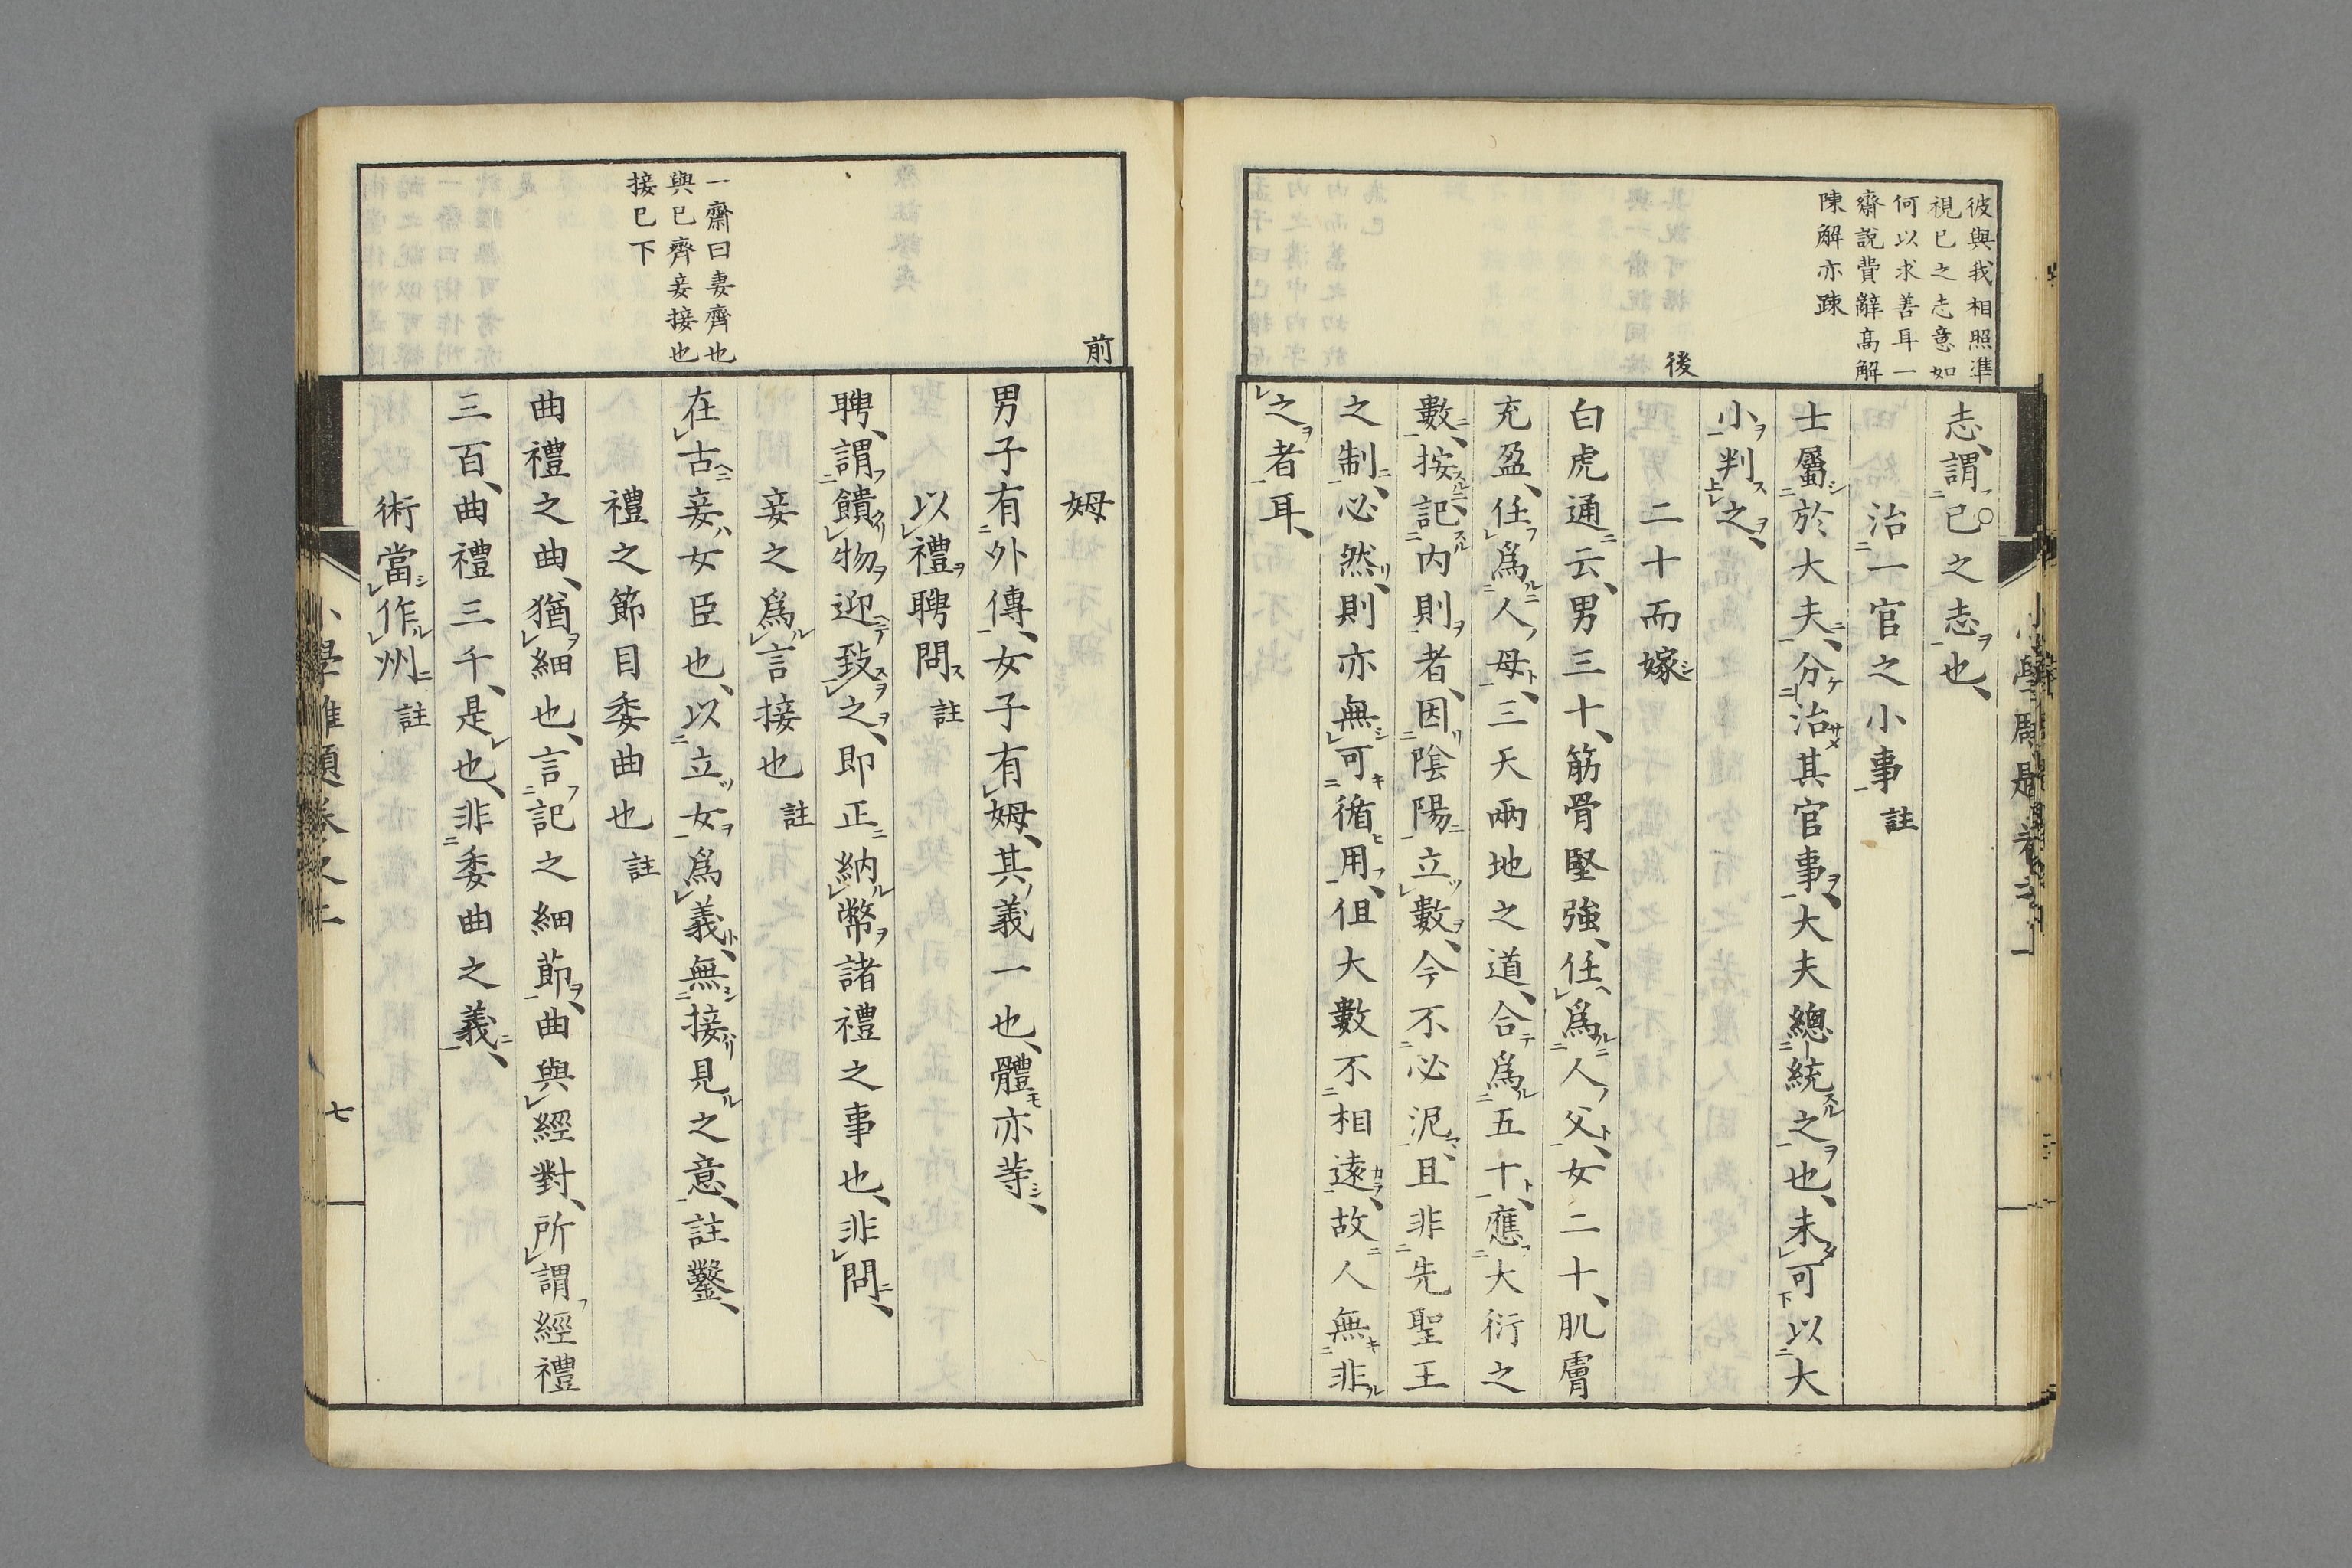 彼與我相照準
視己之志意如
何以求善耳一
齋說費辭高解
陳解亦踈
後
志、謂己之志也、
治一官之小事 註
士屬於大夫、分治其官事、大夫總統之也、未可以大
小判之、
二十而嫁
白虎通云、男三十、筋骨堅強、任爲人父、女二十、肌膚
充盈、任爲人母、三天兩地之道、合爲五十、應大衍之
數、按記內則者、因陰陽立數、今不必泥、且非先聖王
之制、必然、則亦無可循用、但大數不相遠、故人無非
之者耳、
前
一齋曰妻齊也
與己齊妾接也
接己下
姆
男子有外傳、女子有姆、其義一也、體亦等、
以禮聘問 註
聘、謂饋物迎致之、即正納幣諸禮之事也、非問、
妾之爲言接也 註
在古妾、女臣也、以立女爲義、無接見之意、註鑿、
禮之節目委曲也 註
曲禮之曲、猶細也、言記之細節、曲與經對、所謂經禮
三百、曲禮三千、是也、非委曲之義、
術當作州 註
七